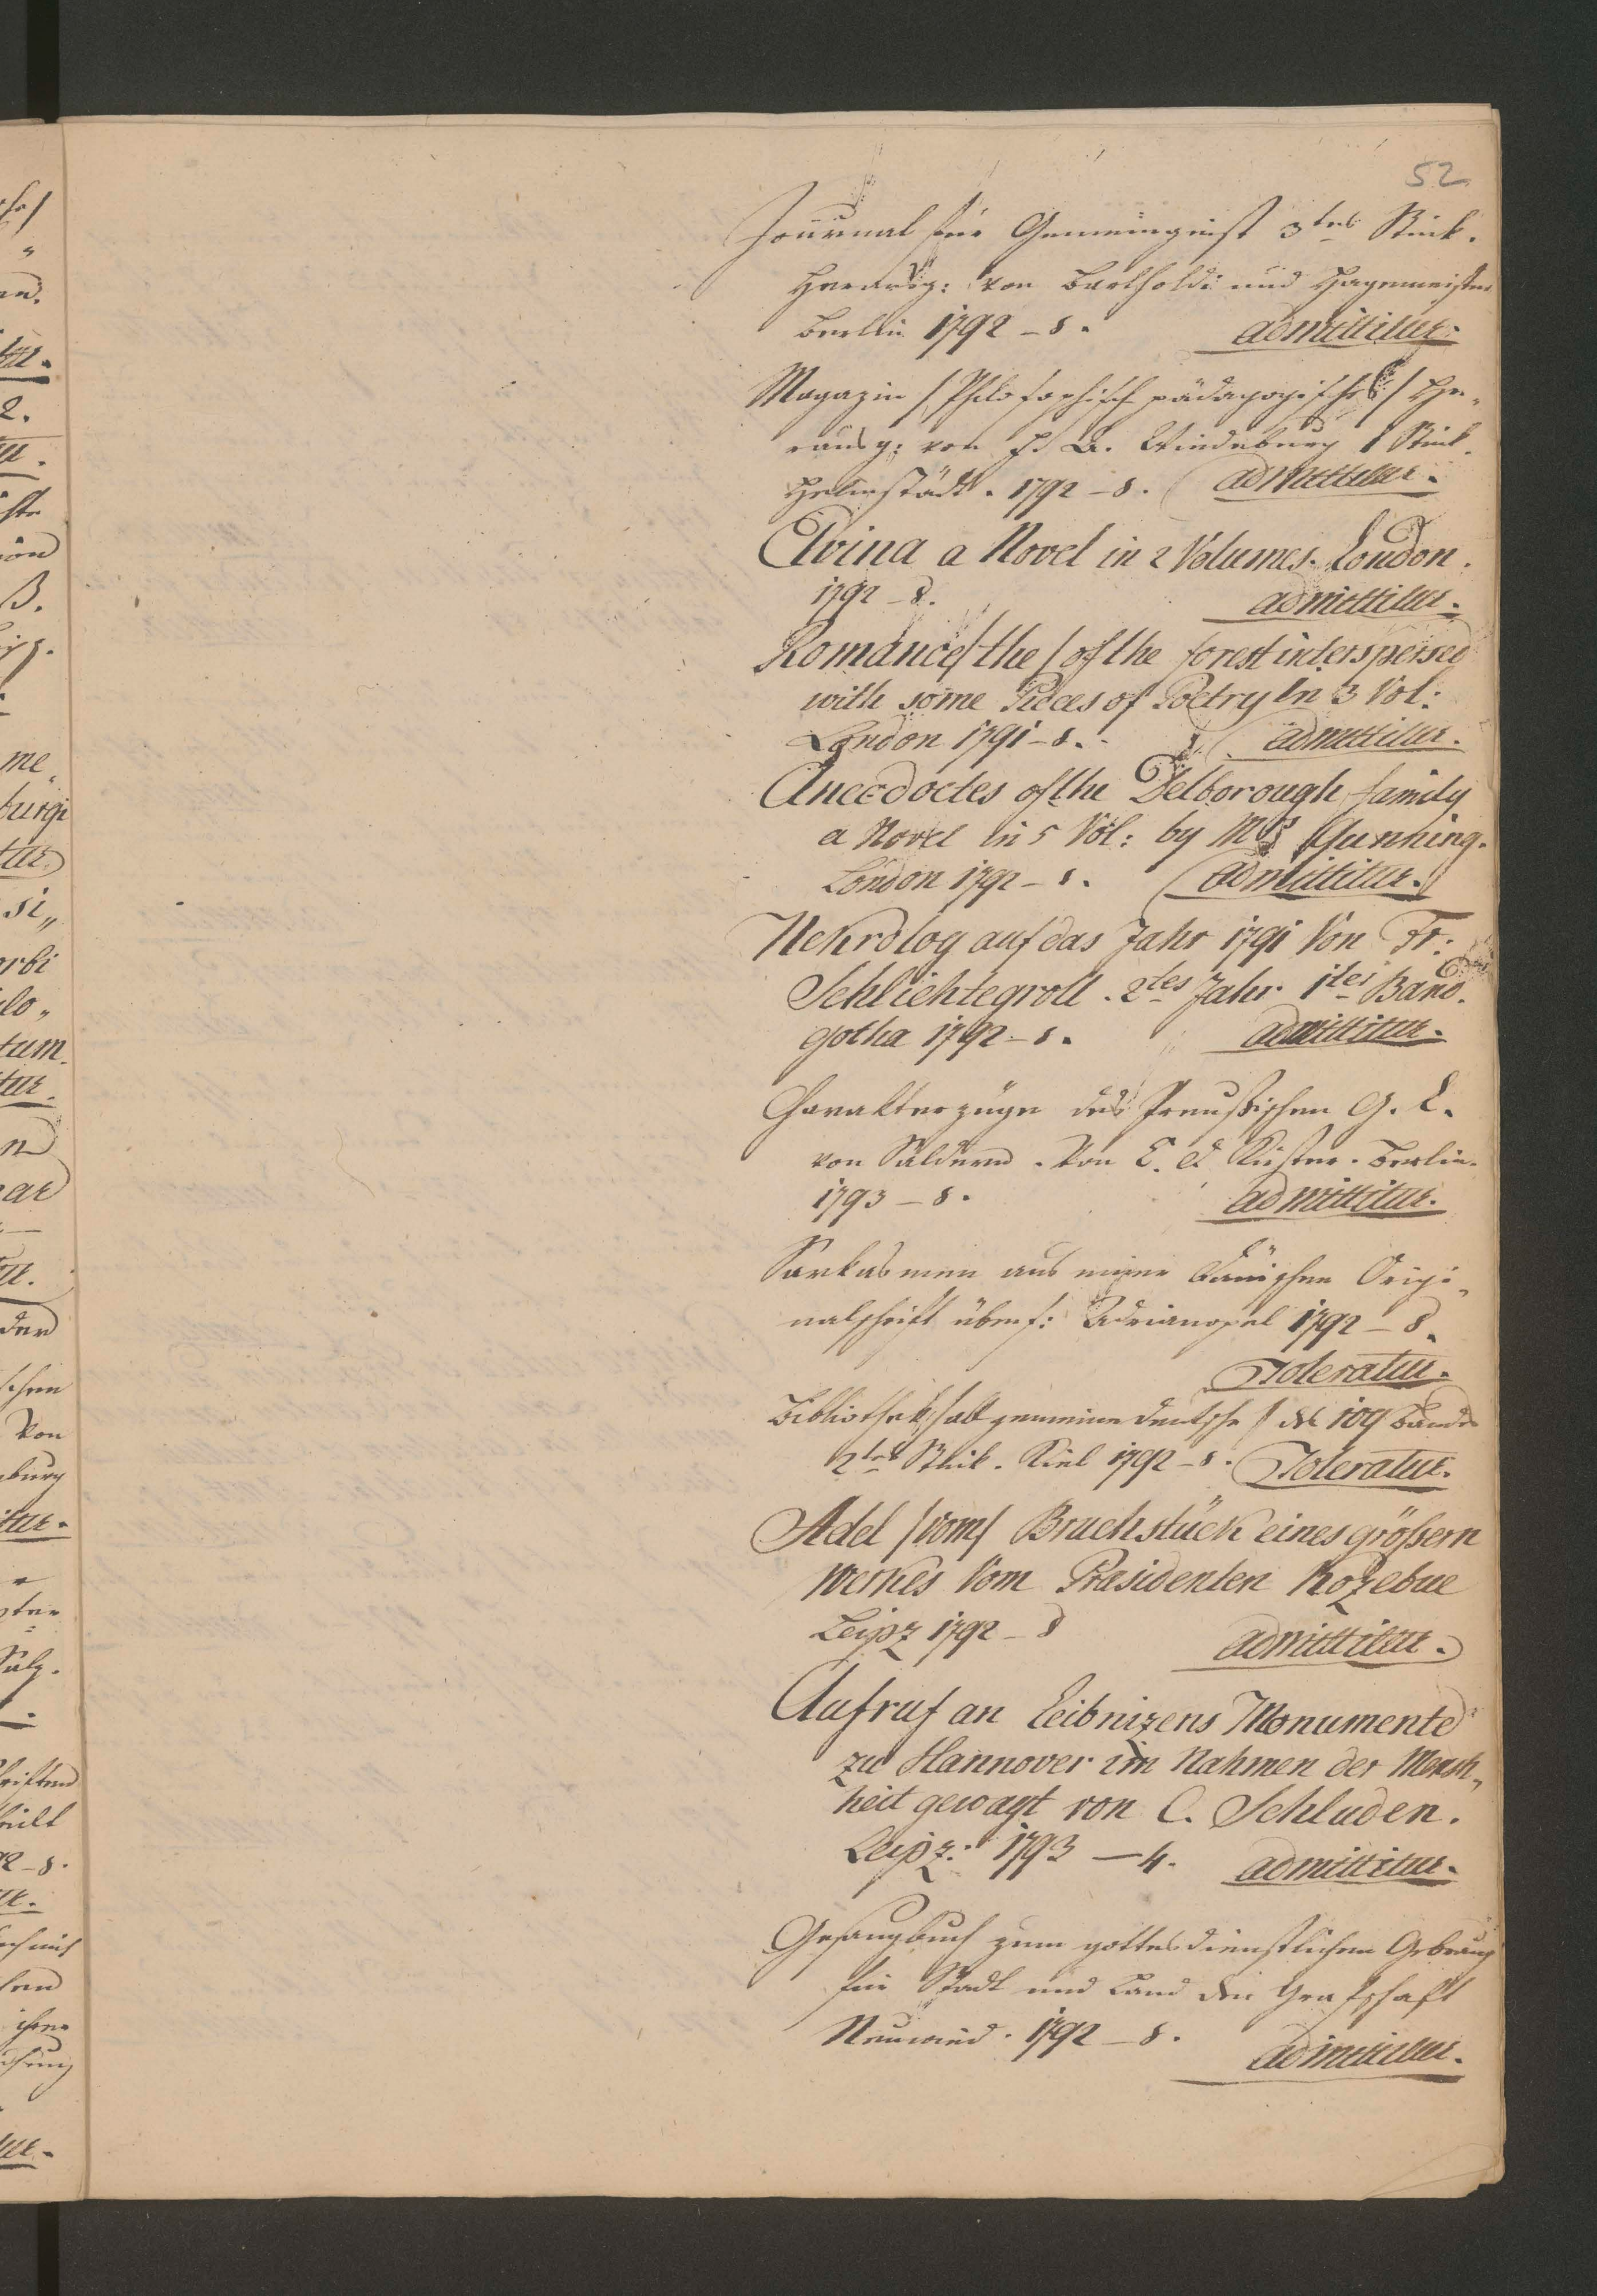 52
Journal für Gemeingeist 3tes Stück.
Herausg: von Bartholdi und Hagemeister
Berlin 1792 – 8. admittitur.
Magazin /Philosophisch pädagogisches/ He„
rausg: von Fr A. Wiedeburg 1 Stück.
Helmstädt. 1792 – 8. admittitur.
Elvina a Novel in 2 Volumes. London.
1792 – 8. admittitur.
Romance /the/ of the forest interspersed
with some Pieces of Poetry In 3 Vol:
London 1791 – 8. admittitur.
Anecdoctes of the Delborough family
a Novel in 5 Vol: by Mrs Gunning.
London 1792 – 8. admittitur.
Nekrolog auf das Jahr 1791 Von Fr:
Schlichtegroll. 2tes Jahr 1ter Band.
gotha 1792 – 8. admittitur.
Charakterzüge des Preußischen G. L.
von Saldern. Von C. D Küster. Berlin.
1793 – 8. admittitur.
Sarkasmen aus einer Origi„
nalschrift übers: Adrianopel 1792 – 8.
Toleratur.
Bibliothek /allgemeine deutsche/ des 109 Bandes
2tes Stück. Kiel 1792 – 8. Toleratur.
Adel /vom/ Bruchstück eines größern
Werkes Vom Præsidenten Kozebue
Leipz 1792 – 8 admittitur.
Aufruf an Leibnizens Monumente
zu Hannover im Nahmen der Mensch„
heit gewagt von C. Schluden.
Leipz: 1793 – 4. admittitur.
Gesangbuch zum gottesdienstlichen Gebrauch
für Stadt und Land der Grafschaft
Neuwied. 1792 – 8. admittitur.